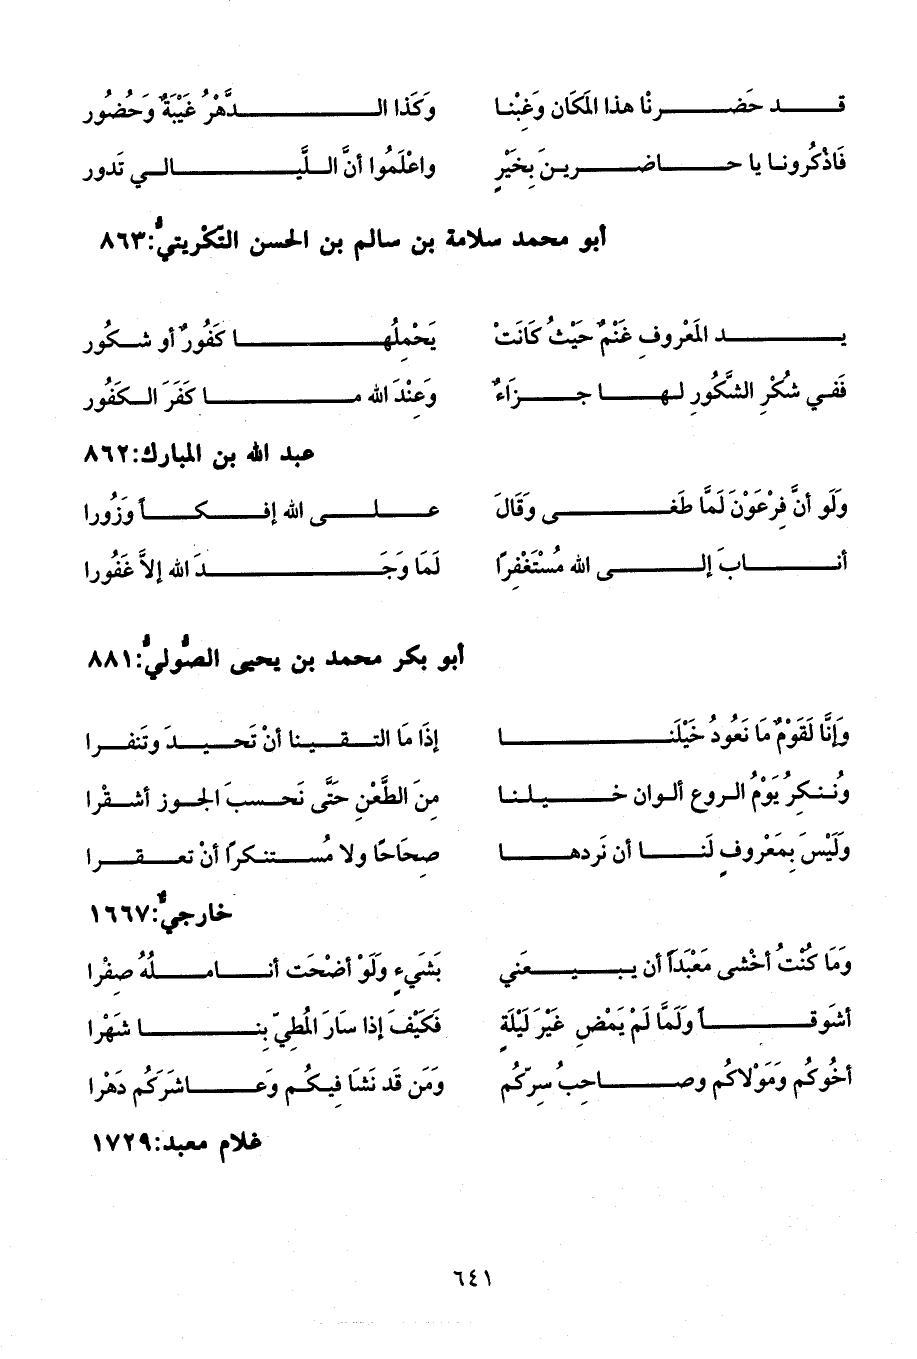 قد حَضَرنْا هذا المَكَان وَغبْنا وَكَذا الدَّهْرُ غَيْبَةٌ وَحُضُور
فَاذْكُرونا يا حاضرينَ بِخَيْرٍ واعْلَمُوا أنَّ اللَّيالي تَدور
أبو محمد سلامة بن سالم بن الحسن التّكْريتيُّ:٨٦٣
يد المَعْروفِ غَنْمٌ حَيْثُ كَانَتْ يَحْمِلُها كَفُورٌ أو شكُور
فَفي شُكْرِ الشَّكُورِ لها جزَاءٌ وَعِنْدَ الله ما كفَرَ الكَفُور
عبد الله بن المبارك:٨٦٢
وَلَو أنَّ فِرْعَوْنَ لَمَّا طَغى وَقَالَ على الله إفكاً وَزُورا
أنابَ إلى الله مُسْتَغْفِرًا لَمَا وَجَدَ الله إلاَّ غَفُورا
أبو بكر محمد بن يحيى الصُّوليُّ:٨٨١
وَإنَّا لَقَوْمٌ مَا نَعُودُ خَيْلَنا إذَا مَا التقينا أنْ تَحيدَ وتَنفرا
وَنُنكِرُ يَوْمُ الروع ألوان خيلنا منَ الطَّعْنِ حَتَّى نَحسبَ الجوز أشقْرا
وَلَيْسَ بِمَعْروفٍ لَنا أن نَردها صِحَاحًا ولا مُستنكراً أنْ تعقرا
خارجيٌّ:١٦٦٧
وَمَا كُنْتُ أخْشى مَعْبَداً أن يبيعَني بَشَيءٍ وَلَوْ أضْحَت أناملُهُ صِفْرا
أشَوقاً وَلَمَّا لَمْ يَمْضِ غَيْرَ لَيْلَةٍ فَكَيْفَ إذا سَارَ المُطيّ بِنا شهْرا
أخُوكُم وَمَوْلاكُم وصاحِبُ سِرّكُم وَمَن قَد نَشَا فِيكُم وَعاشَرَكُم دَهْرا
غلام معبد:١٧٢٩
٦٤١